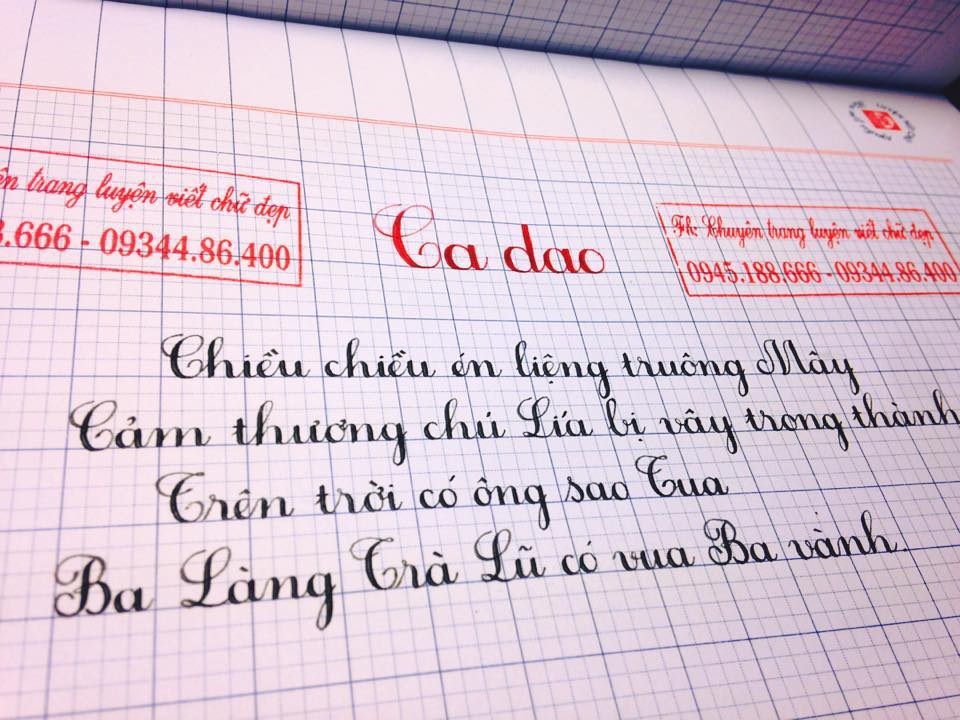 trang luyện viết chữ đẹp
.666 - 09344.86.400
Ca dao
Fb: Chuyên trang luyện viết chữ đẹp
0945.188.666 - 09344.86.400
Chiều chiều én liệng truông Mây
Cảm thương chú Lía bị vây trong thành
Trên trời có ông sao Tua
Ba Làng Trà Lũ có vua Ba vành.